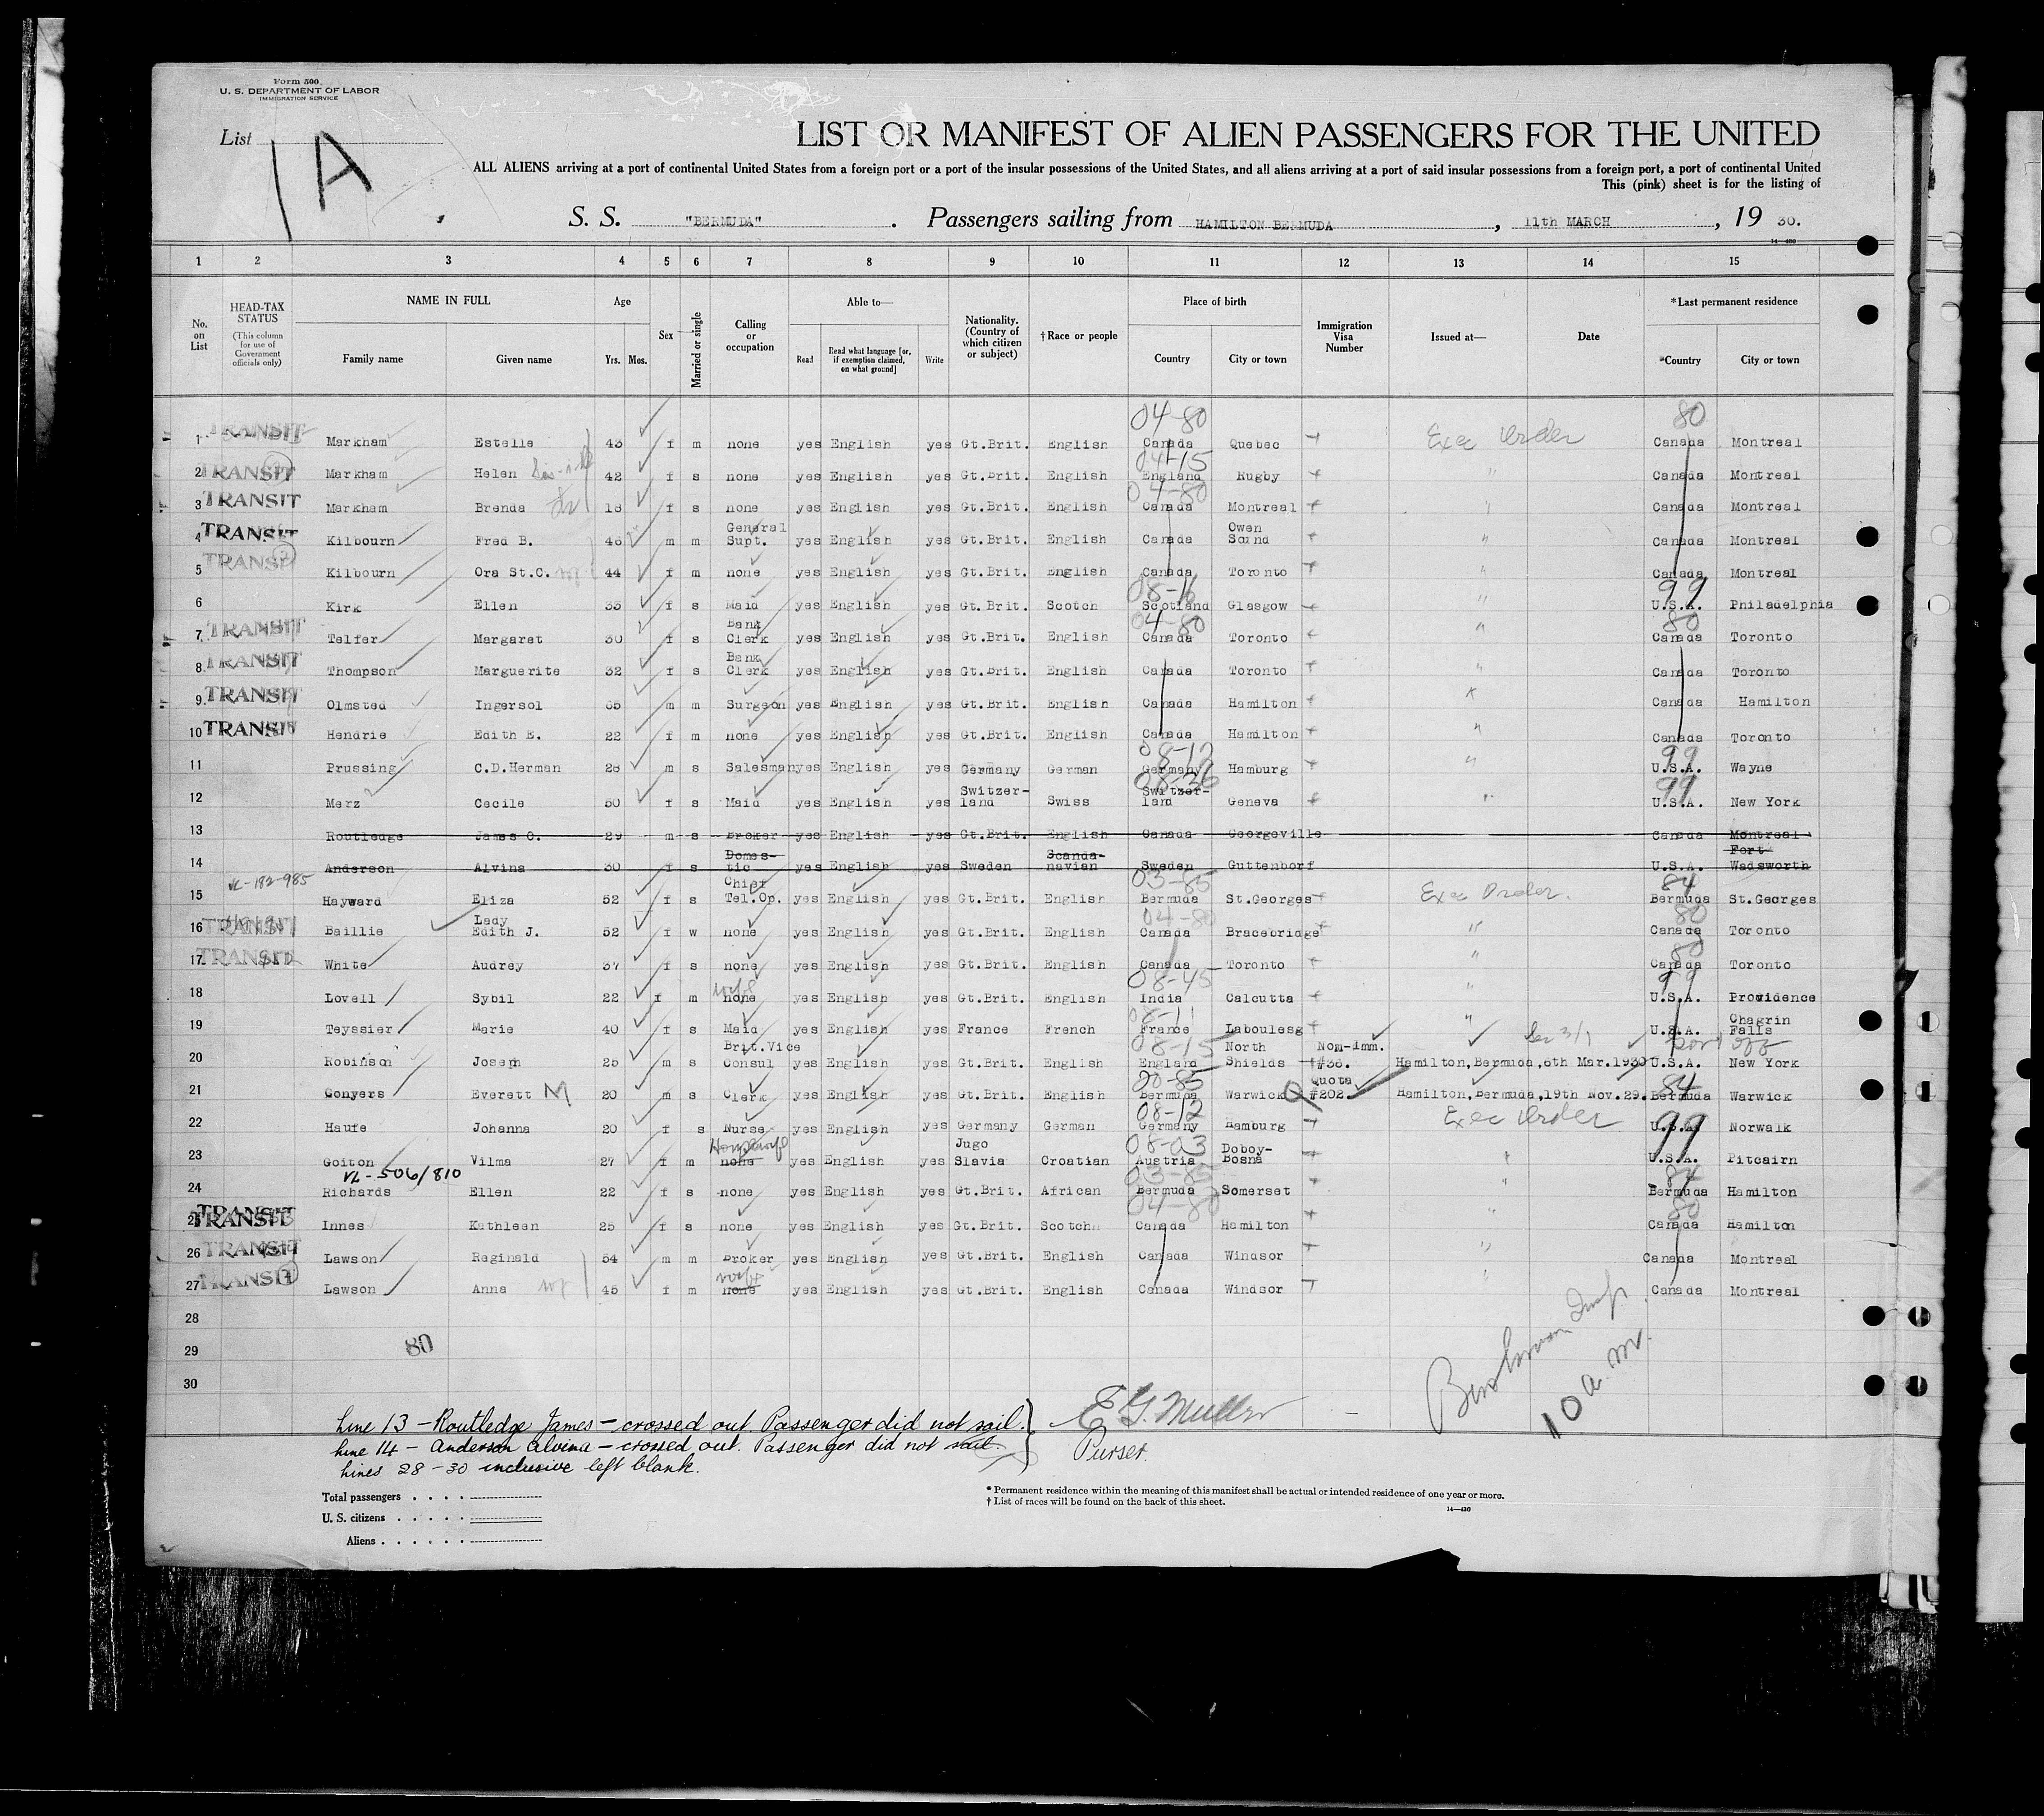 Form 500
U. S. DEPARTMENT OF LABOR
IMMIGRATION SERVICE
List 1A
LIST OR MANIFEST OF ALIEN PASSENGERS FOR THE UNITED
ALL ALIENS arriving at a port of continental United States from a foreign port or a port of the insular possessions of the United States, and all aliens arriving at a port of said insular possessions from a foreign port, a port of continental United
This (pink) sheet is for the listing of
S. S. "BERMUDA". Passengers sailing from HAMILTON BERMUDA, 11th MARCH, 19 30.
14—430
1 2 3 4 5 6 7 8 9 10 11 12 13 14 15
No. on List
HEAD-TAX STATUS (This column for use of Government officials only)
NAME IN FULL Family name Given name
Age Yrs. Mos.
Sex
Married or single
Calling or occupation
Able to— Read Read what language [or, if exemption claimed, on what ground] Write
Nationality. (Country of which citizen or subject)
†Race or people
Place of birth Country City or town
Immigration Visa Number
Issued at—
Date
*Last permanent residence *Country City or town
04-80 80
1 TRANSIT Markham Estelle 43 f m none yes English yes Gt.Brit. English Canada Quebec Exec Order Canada Montreal
04-15
2 TRANSIT Markham Helen 42 f s none yes English yes Gt.Brit. English England Rugby " Canada Montreal
04-80
3 TRANSIT Markham Brenda 18 f s none yes English yes Gt.Brit. English Canada Montreal " Canada Montreal
4 TRANSIT Kilbourn Fred B. 46 m m General Supt. yes English yes Gt.Brit. English Canada Owen Sound " Canada Montreal
5 TRANSIT Kilbourn Ora St.C. wf 44 f m none yes English yes Gt.Brit. English Canada Toronto " Canada Montreal
08-16 99
6 Kirk Ellen 33 f s Maid yes English yes Gt.Brit. Scotch Scotland Glasgow " U.S.A. Philadelphia
04-80 80
7 TRANSIT Telfer Margaret 30 f s Bank Clerk yes English yes Gt.Brit. English Canada Toronto " Canada Toronto
8 TRANSIT Thompson Marguerite 32 f s Bank Clerk yes English yes Gt.Brit. English Canada Toronto " Canada Toronto
9 TRANSIT Olmsted Ingersol 65 m m Surgeon yes English yes Gt.Brit. English Canada Hamilton " Canada Hamilton
10 TRANSIT Hendrie Edith E. 22 f m none yes English yes Gt.Brit. English Canada Hamilton " Canada Toronto
08-12 99
11 Prussing C.D.Herman 28 m s Salesman yes English yes Germany German Germany Hamburg " U.S.A. Wayne
08-26 99
12 Merz Cecile 50 f s Maid yes English yes Switzer-land Swiss Switzer-land Geneva " U.S.A. New York
13 Routledge James O. 29 m s Broker yes English yes Gt.Brit. English Canada Georgeville Canada Montreal
14 Anderson Alvina 30 f s Domes-tic yes English yes Sweden Scanda-navian Sweden Guttenborf U.S.A. Fort Wadsworth
VL-182-985 03-85 84
15 Hayward Eliza 52 f s Chief Tel.Op. yes English yes Gt.Brit. English Bermuda St.Georges Exec Order. Bermuda St.Georges
04-80 80
16 TRANSIT Baillie Lady Edith J. 52 f w none yes English yes Gt.Brit. English Canada Bracebridge " Canada Toronto
80
17 TRANSIT White Audrey 37 f s none yes English yes Gt.Brit. English Canada Toronto " Canada Toronto
08-45 99
18 Lovell Sybil 22 f m wife none yes English yes Gt.Brit. English India Calcutta U.S.A. Providence
08-11
19 Teyssier Marie 40 f s Maid yes English yes France French France Laboulesg " U.S.A. Chagrin Falls
08-15 Sec 3/1 Gov't Off
20 Robinson Joseph 25 m s Brit.Vice Consul yes English yes Gt.Brit. English England North Shields Non-imm. #36. Hamilton,Bermuda,6th Mar.1930 U.S.A. New York
00-85 84
21 Conyers Everett M 20 m s Clerk yes English yes Gt.Brit. English Bermuda Warwick Q Quota #202 Hamilton,Bermuda,19th Nov.29. Bermuda Warwick
08-12 99
22 Haufe Johanna 20 f s Nurse yes English yes Germany German Germany Hamburg Exec Order U.S.A. Norwalk
08-03
23 Goiton Vilma 27 f m Housewife none yes English yes Jugo Slavia Croatian Austria Doboy-Bosna " U.S.A. Pitcairn
VL-506/810 03-85 84
24 Richards Ellen 22 f s none yes English yes Gt.Brit. African Bermuda Somerset " Bermuda Hamilton
04-80 80
25 TRANSIT Innes Kathleen 25 f s none yes English yes Gt.Brit. Scotch Canada Hamilton " Canada Hamilton
26 TRANSIT Lawson Reginald 54 m m Broker yes English yes Gt.Brit. English Canada Windsor " Canada Montreal
27 TRANSIT Lawson Anna wf 45 f m wife none yes English yes Gt.Brit. English Canada Windsor " Canada Montreal
28
29 80
30
10 a. m.
Line 13 - Routledge James - crossed out. Passenger did not sail.
Line 14 - Anderson Alvina - crossed out. Passenger did not sail.
Lines 28-30 inclusive left blank.
E G. Muller
Purser.
Total passengers
U. S. citizens
Aliens
* Permanent residence within the meaning of this manifest shall be actual or intended residence of one year or more.
† List of races will be found on the back of this sheet.
14—430